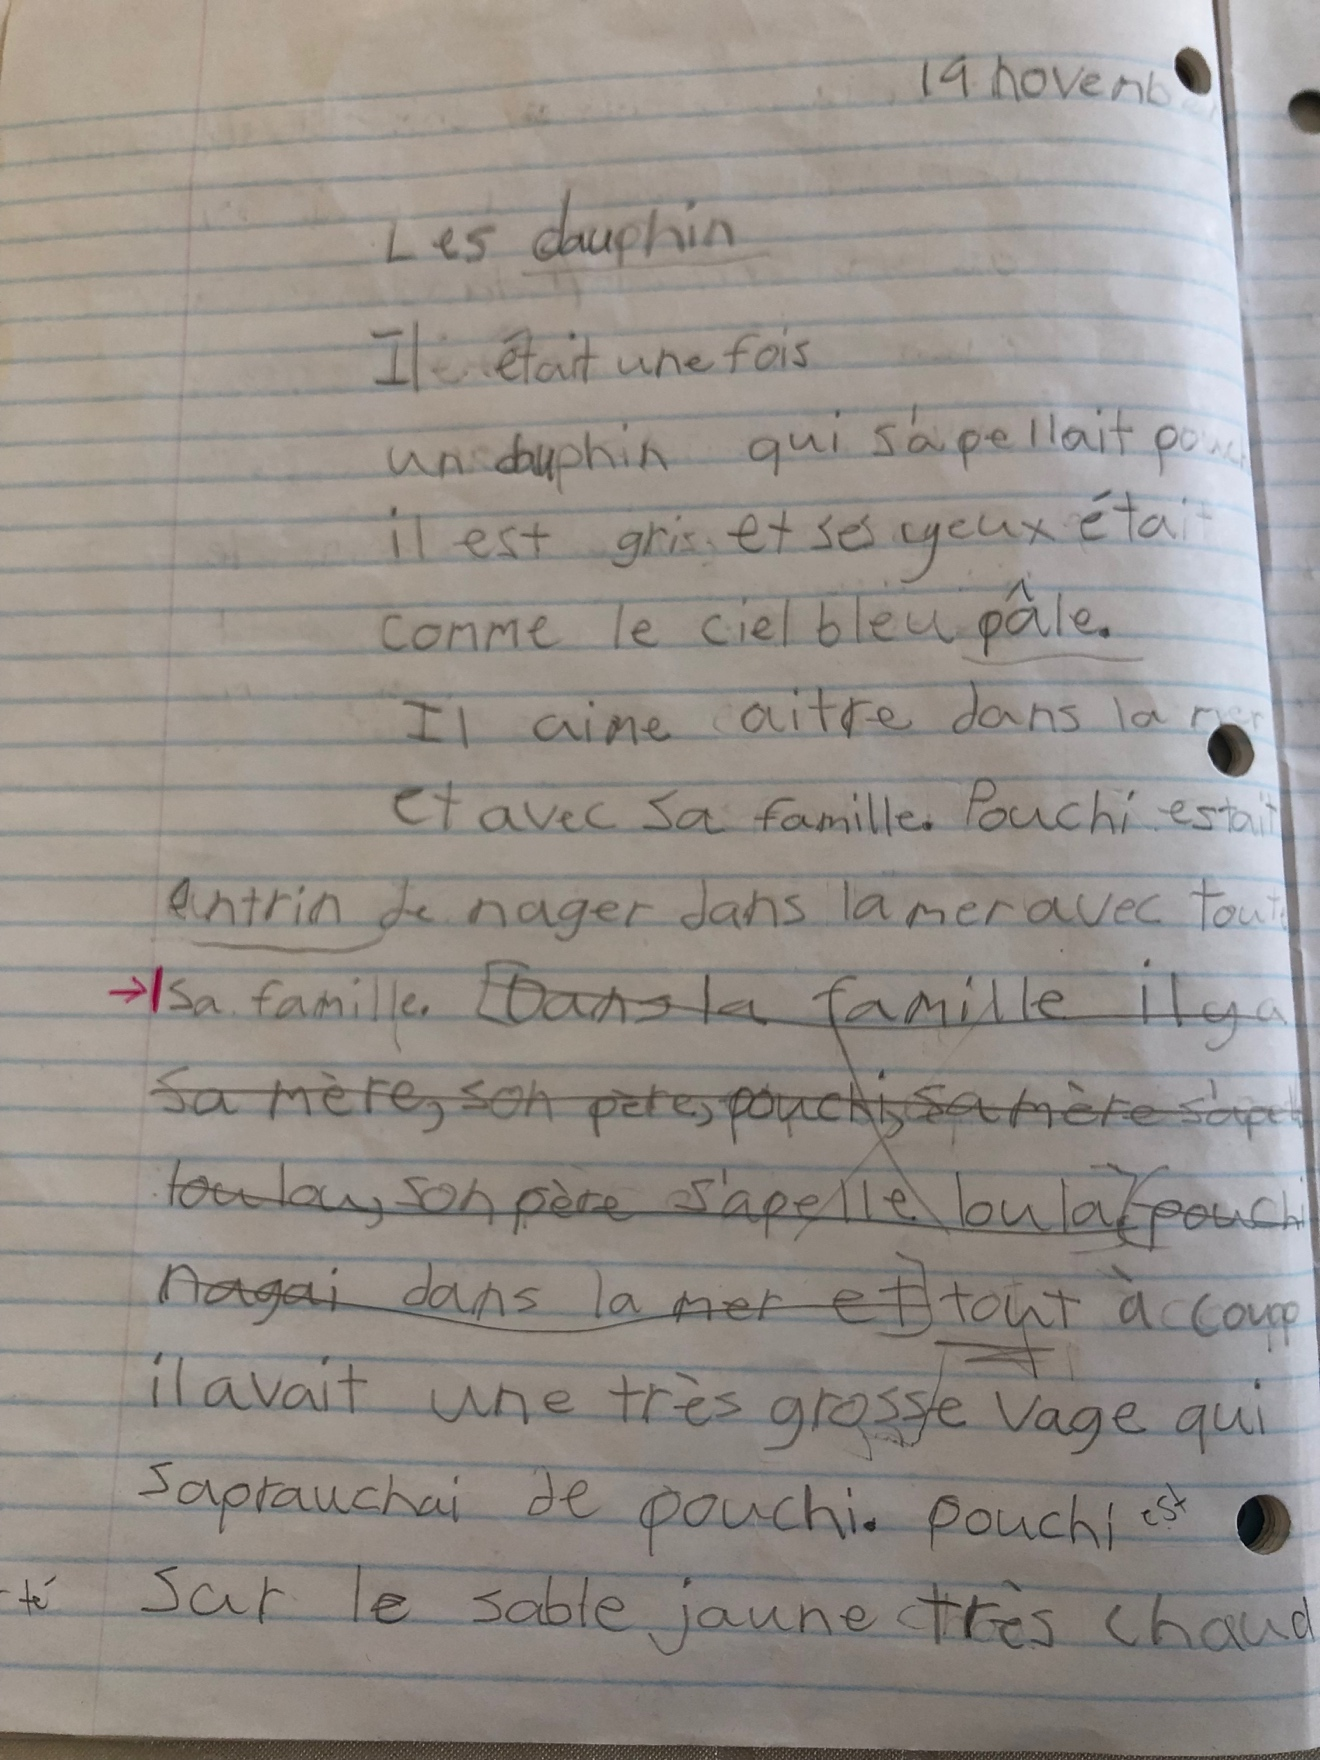 19 novemb
Les dauphin
Il était une fois
un dauphin qui s'apellait
il est gris et ses yeux étai
comme le ciel bleu pâle.
Il aime aitre dans la mer
et avec sa famille. Pouchi estait
entrin de nager dans la mer avec tout
sa famille. Dans la famille il y a
sa mère, son père, pouchi, sa mère s'ape
toulou, son père s'apelle loula pouchi
nagai dans la mer et tout à coup
il avait une très grosse vage qui
saprauchai de pouchi. Pouchi est
té sur le sable jaune très chaud